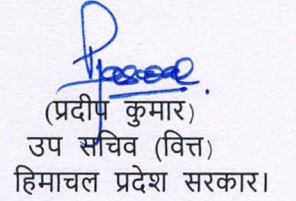 (प्रदीप कुमार)
उप सचिव (वित्त)
हिमाचल प्रदेश सरकार।